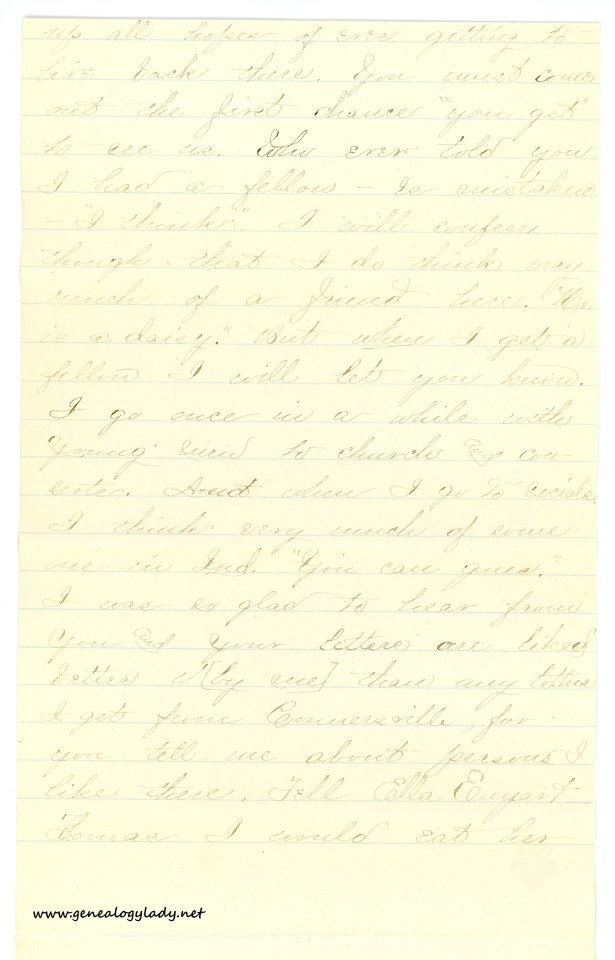 up all hopes of ever getting to
live back there. You must come
out the first chance "you get"
to see us. Who ever told you
I had a fellow – is mistaken
– "I think". I will confess
though that I do think very
much of a friend here. "He
is a daisy." But when I get a
fellow I will let you know.
I go once in a while with
young men to church and con-
certs. And when I go to socials
I think very much of some
one in Ind. "You can guess."
I was so glad to hear from
you and your letters are liked
better [by me] than any letters
I get from Connersville, for
you tell me about persons I
like there. Tell Ella Enyart
Thomas I would eat her
www.genealogylady.net